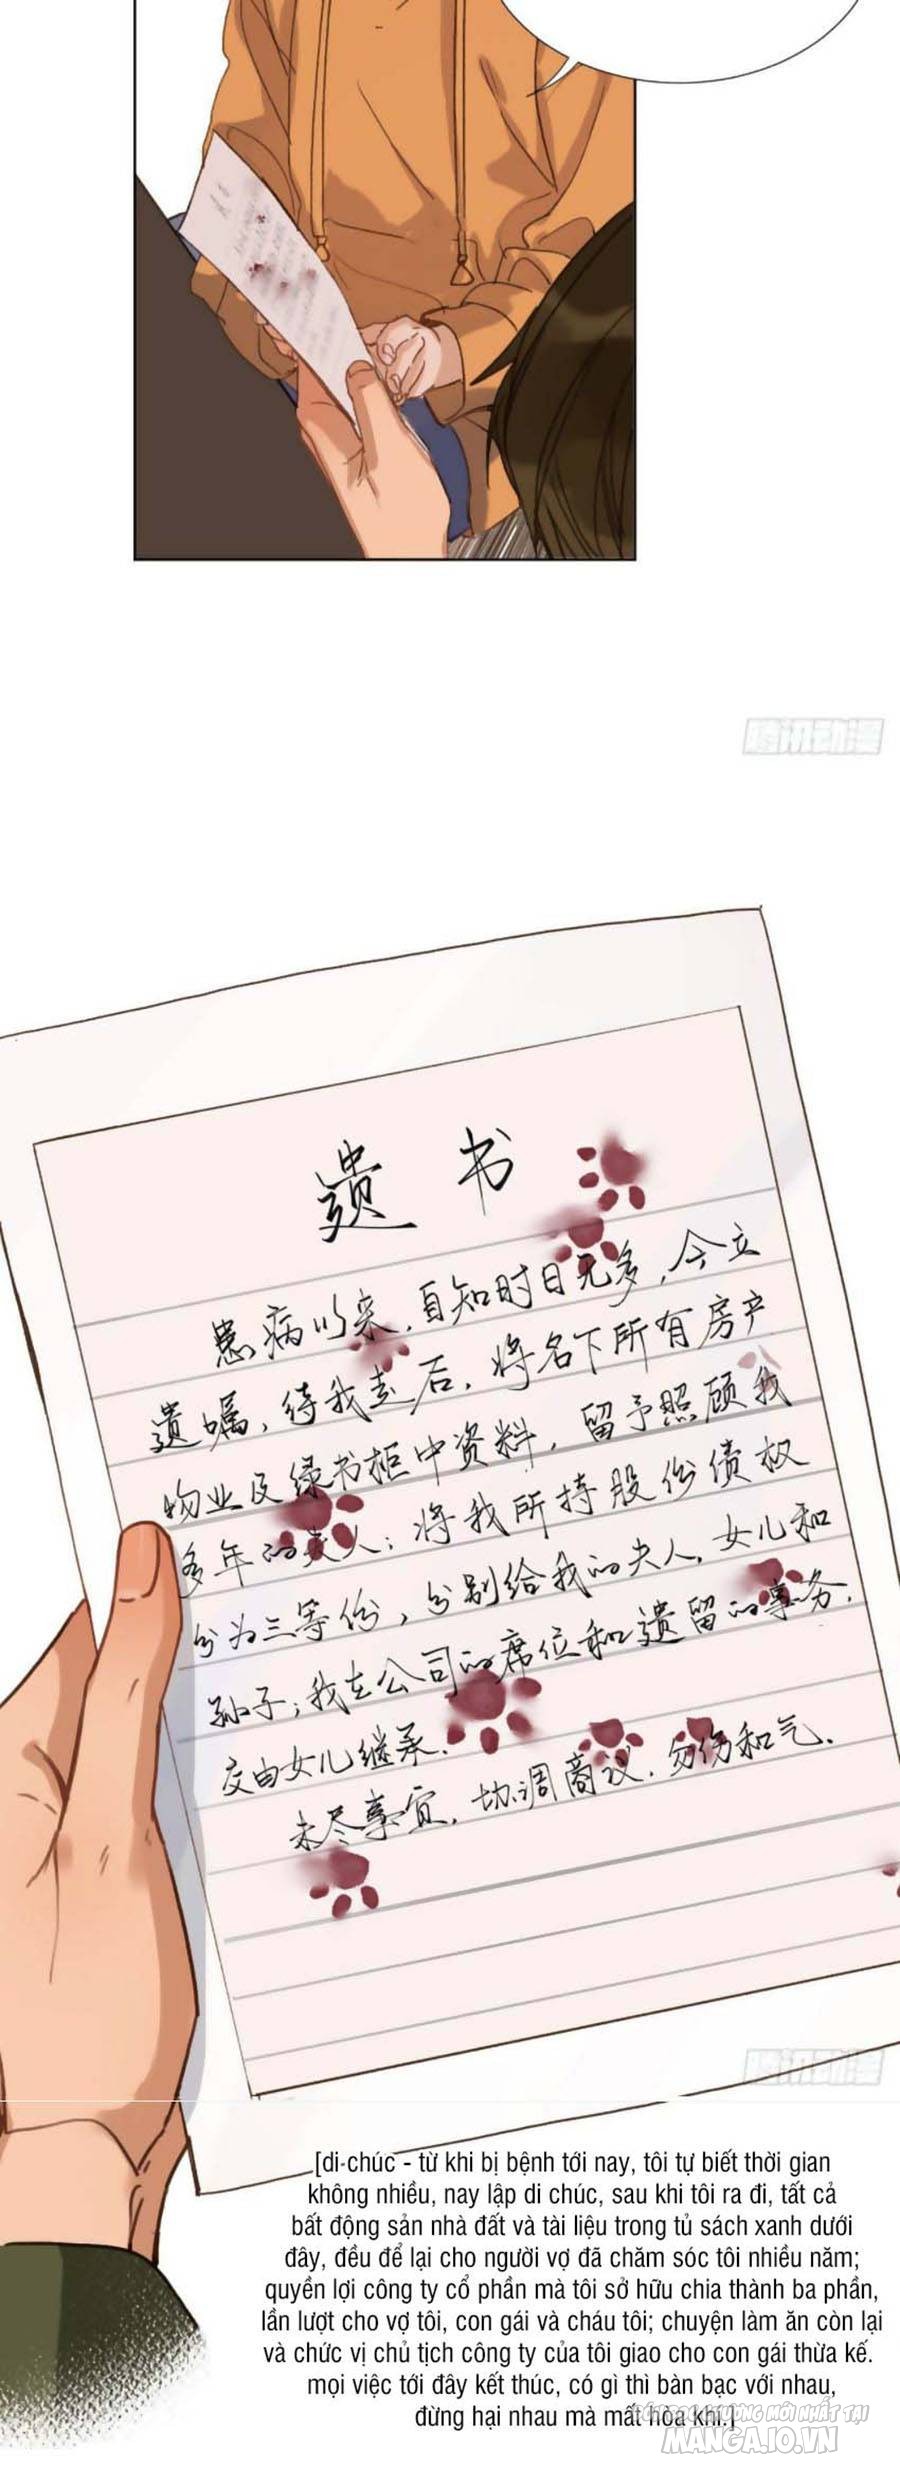 遗书
患病以来，自知时日无多，今立
遗嘱，待我走后，将名下所有房产
物业及绿书柜中资料，留予照顾我
多年的夫人；将我所持股份债权
分为三等份，分别给我的夫人，女儿和
孙子；我在公司的席位和遗留的事务，
交由女儿继承．
未尽事宜，协调商议，勿伤和气．
[di chúc - từ khi bị bệnh tới nay, tôi tự biết thời gian
không nhiều, nay lập di chúc, sau khi tôi ra đi, tất cả
bất động sản nhà đất và tài liệu trong tủ sách xanh dưới
đây, đều để lại cho người vợ đã chăm sóc tôi nhiều năm;
quyền lợi công ty cổ phần mà tôi sở hữu chia thành ba phần,
lần lượt cho vợ tôi, con gái và cháu tôi; chuyện làm ăn còn lại
và chức vị chủ tịch công ty của tôi giao cho con gái thừa kế.
mọi việc tới đây kết thúc, có gì thì bàn bạc với nhau,
đừng hại nhau mà mất hòa khí.]
MANGA.IO.VN